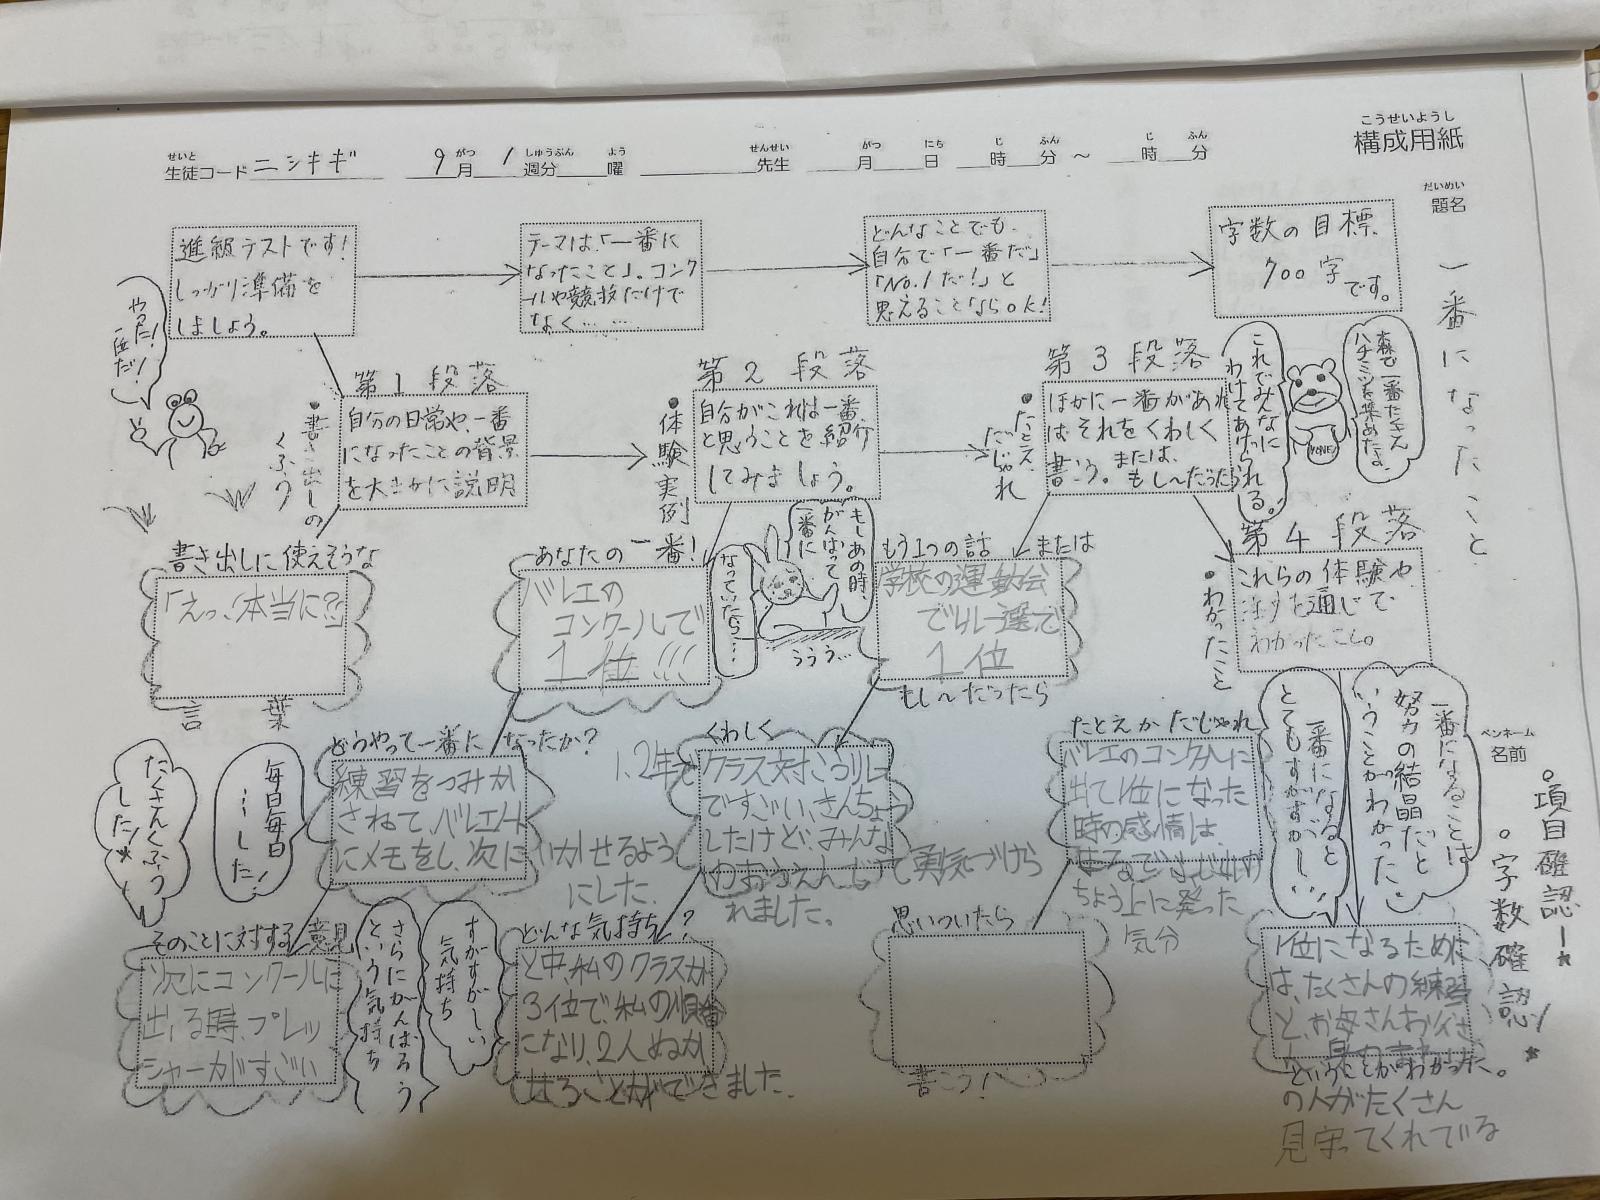 こうせいようし
構成用紙
せいと がつ しゅうぶん よう せんせい がつ にち じ ふん じ ふん
生徒コード ニシキギ 9月 1週分 曜 先生 月 日 時 分 〜 時 分
だいめい
題名
一番になったこと
ペンネーム
名前
進級テストです!
しっかり準備を
しましょう。
テーマは、「一番に
なったこと」。コンク
ールや競技だけで
なく……
どんなことでも、
自分で「一番だ」
「No.1だ!」と
思えることならOK!
字数の目標
700字
です。
やった!
一匹だ!
第1段落
自分の日常や、一番
になったことの背景
を大まかに説明
•書き出しの
くふう
第2段落
自分がこれは一番
と思うことを紹介
してみましょう。
•体験実例
第3段落
ほかに一番があれ
ばそれをくわしく
書こう。または、
もし〜だったら
•たとえ、
だじゃれ
森で一番たくさん
ハチミツを集めたよ。
これでみんなに
わけてあげられる。
HONEY
第4段落
これらの体験や
話を通じて
わかったこと。
•わかったこと
書き出しに使えそうな
「えっ、本当に?!」
言葉
あなたの一番!
バレエの
コンクールで
1位!!!
もしあの時、
がんばって
一番に
なっていたら…
ううう…
もう1つの話 または
学校の運動会
でリレー選で
1位
もし〜だったら
どうやって一番になったか?
練習をつみか
さねて、バレエノート
にメモをし、次にいかせるよう
にした。
毎日毎日
…した!
たくさんくふう
した!
くわしく
1、2年で
クラス対こうリレー
ですごい、きんちょう
したけど、みんな
のおうえんで勇気づけら
れました。
たとえかだじゃれ
バレエのコンクールに
出て1位になった
時の感情は、
まるで
ちょう上に登った
気分
一番になることは
努力の結晶だと
いうことがわかった
一番になると
とてもすがすがしい
そのことに対する意見
次にコンクールに
出る時、プレッ
シャーがすごい
すがすがしい
気持ち
さらにがんばろう
という気持ち
どんな気持ち?
と中、私のクラスが
3位で、私の順番
になり、2人ぬか
せることができました。
思いついたら
書こう!
1位になるために
は、たくさんの練習
と、お母さんお父さ
ということがわかった。
の人がたくさん
見守ってくれている
•項目確認!
•字数確認!